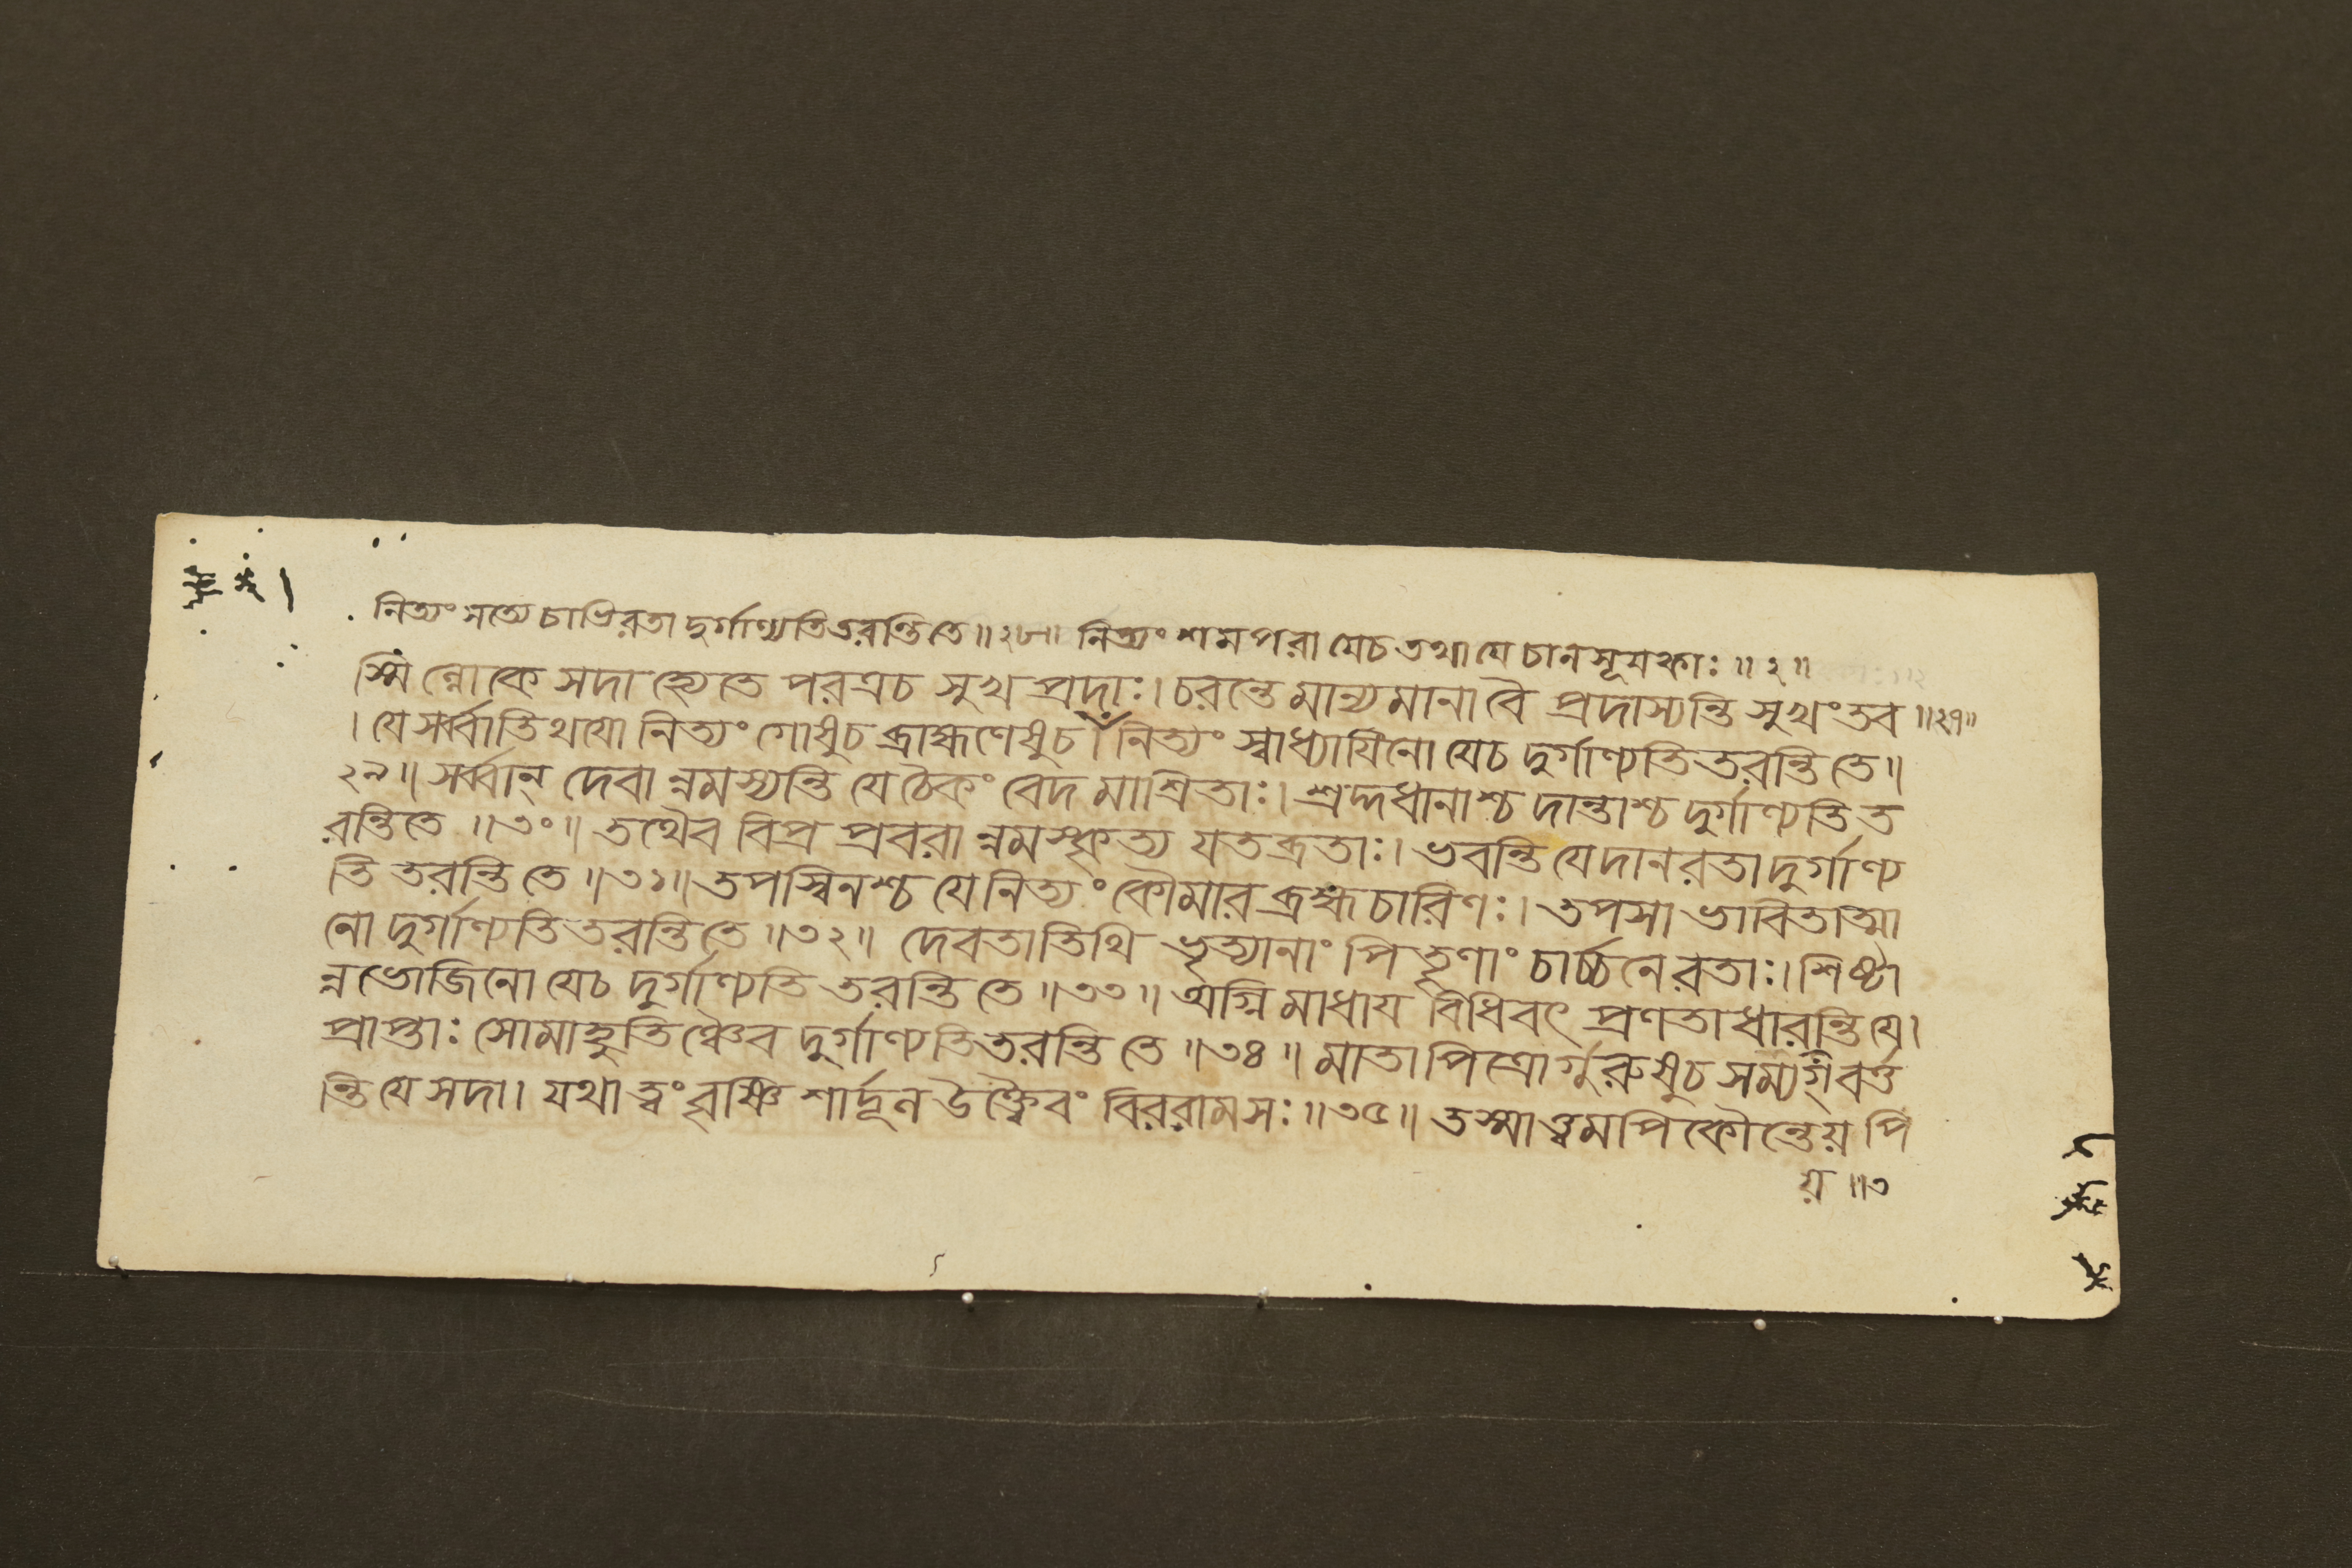 নিত্যং সত্যে চাভিরতা দুর্গাণ্যতিতরন্তিতে ॥২৮॥ নিত্যং শমপরা যেচ তথা যে চানসূযকাঃ ॥২॥
স্মিঁল্লোকে সদা হ্যেতে পরত্রচ সুখ প্রদাঃ। চরন্তে মান্যমানা বৈ প্রদাস্যন্তি সুখং তব ॥২৭॥
। যে সর্ব্বাতিথযো নিত্যং গোষুচ ব্রাহ্মণেষুচ। নিত্যং স্বাধ্যাযিনো যেচ দুর্গাণ্যতিতরন্তিতে॥
২৯॥ সর্ব্বান্ দেবা ন্নমস্যন্তি যে চৈকং বেদ মাশ্রিতাঃ। শ্রদ্দধানাশ্চ দান্তাশ্চ দুর্গাণ্যতিত
রন্তিতে ॥৩০॥ তথৈব বিপ্র প্রবরা ন্নমস্কৃত্য যতব্রতাঃ। ভবন্তি যে দানরতা দুর্গাণ্য
তি তরন্তি তে ॥৩১॥ তপস্বিনশ্চ যে নিত্যং কৌমার ব্রহ্মচারিণঃ। তপসা ভাবিতাত্মা
নো দুর্গাণ্যতিতরন্তিতে ॥৩২॥ দেবতাতিথি ভৃত্যানাং পিতৄণাং চার্চ্চনে রতাঃ। শিষ্টা
ন্নভোজিনো যেচ দুর্গাণ্যতি তরন্তি তে ॥৩৩॥ অগ্নি মাধায বিধিবৎ প্রণতা ধারন্তি যে।
প্রাপ্তাঃ সোমাহুতিঞ্চৈব দুর্গাণ্যতিতরন্তি তে ॥৩৪॥ মাতাপিত্রোর্গুরুষুচ সম্যগ্বর্ত্ত
ন্তি যে সদা। যথা ত্বং বৃষ্ণি শার্দূল উক্ত্বৈবং বিররামসঃ ॥৩৫॥ তস্মাত্ত্বমপি কৌন্তেয় পি
য় ॥৩